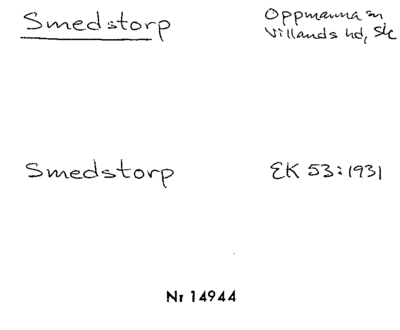 Smedstorp
Oppmanna sn
Villands hd, Sk
Smedstorp
EK 53:1931
Nr 14944